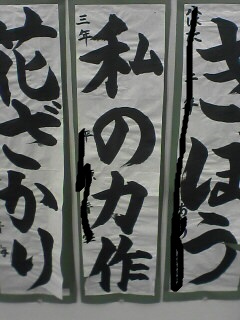 きぼう
私の力作
三年
花ざかり